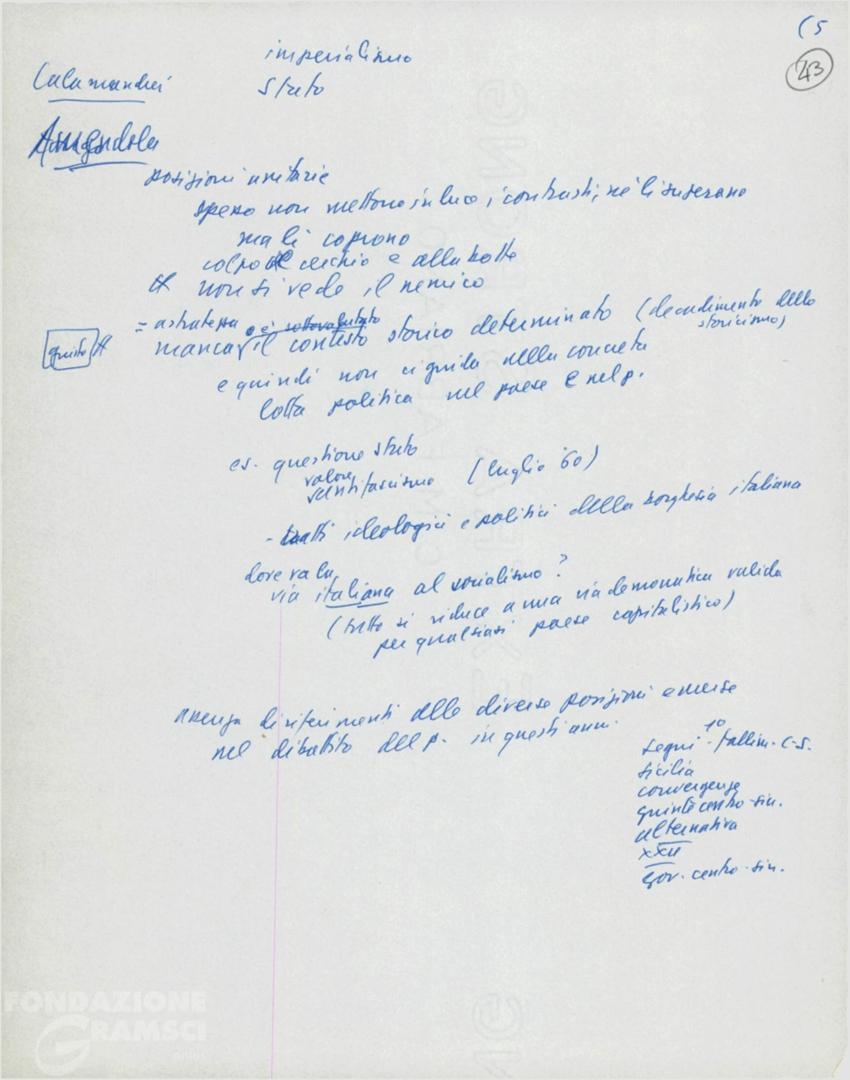 (5
43
imperialismo
Calamandrei
Stato
Amendola
posizioni unitarie
spesso non mettono in luce i contrasti, né li superano
ma li coprono
colpo al cerchio e alla botte
non si vede il nemico
= astrattezza o è sottovalutato
giusto
manca il contesto storico determinato (decadimento dello
storicismo)
e quindi non ci guida nella concreta
lotta politica nel paese e nel p.
es. questione stato
valore
antifascismo (luglio '60)
- tratti ideologici e politici della borghesia italiana
dove va la
via italiana al socialismo?
(tutto si riduce a una via democratica valida
per qualsiasi paese capitalistico)
assenza di riferimenti alle diverse posizioni emerse
nel dibattito del p. in questi anni.
Segni - 1º fallim. c-s.
Sicilia
convergenze
giunte centro-sin.
alternativa
XXII
gov. centro-sin.
FONDAZIONE
GRAMSCI